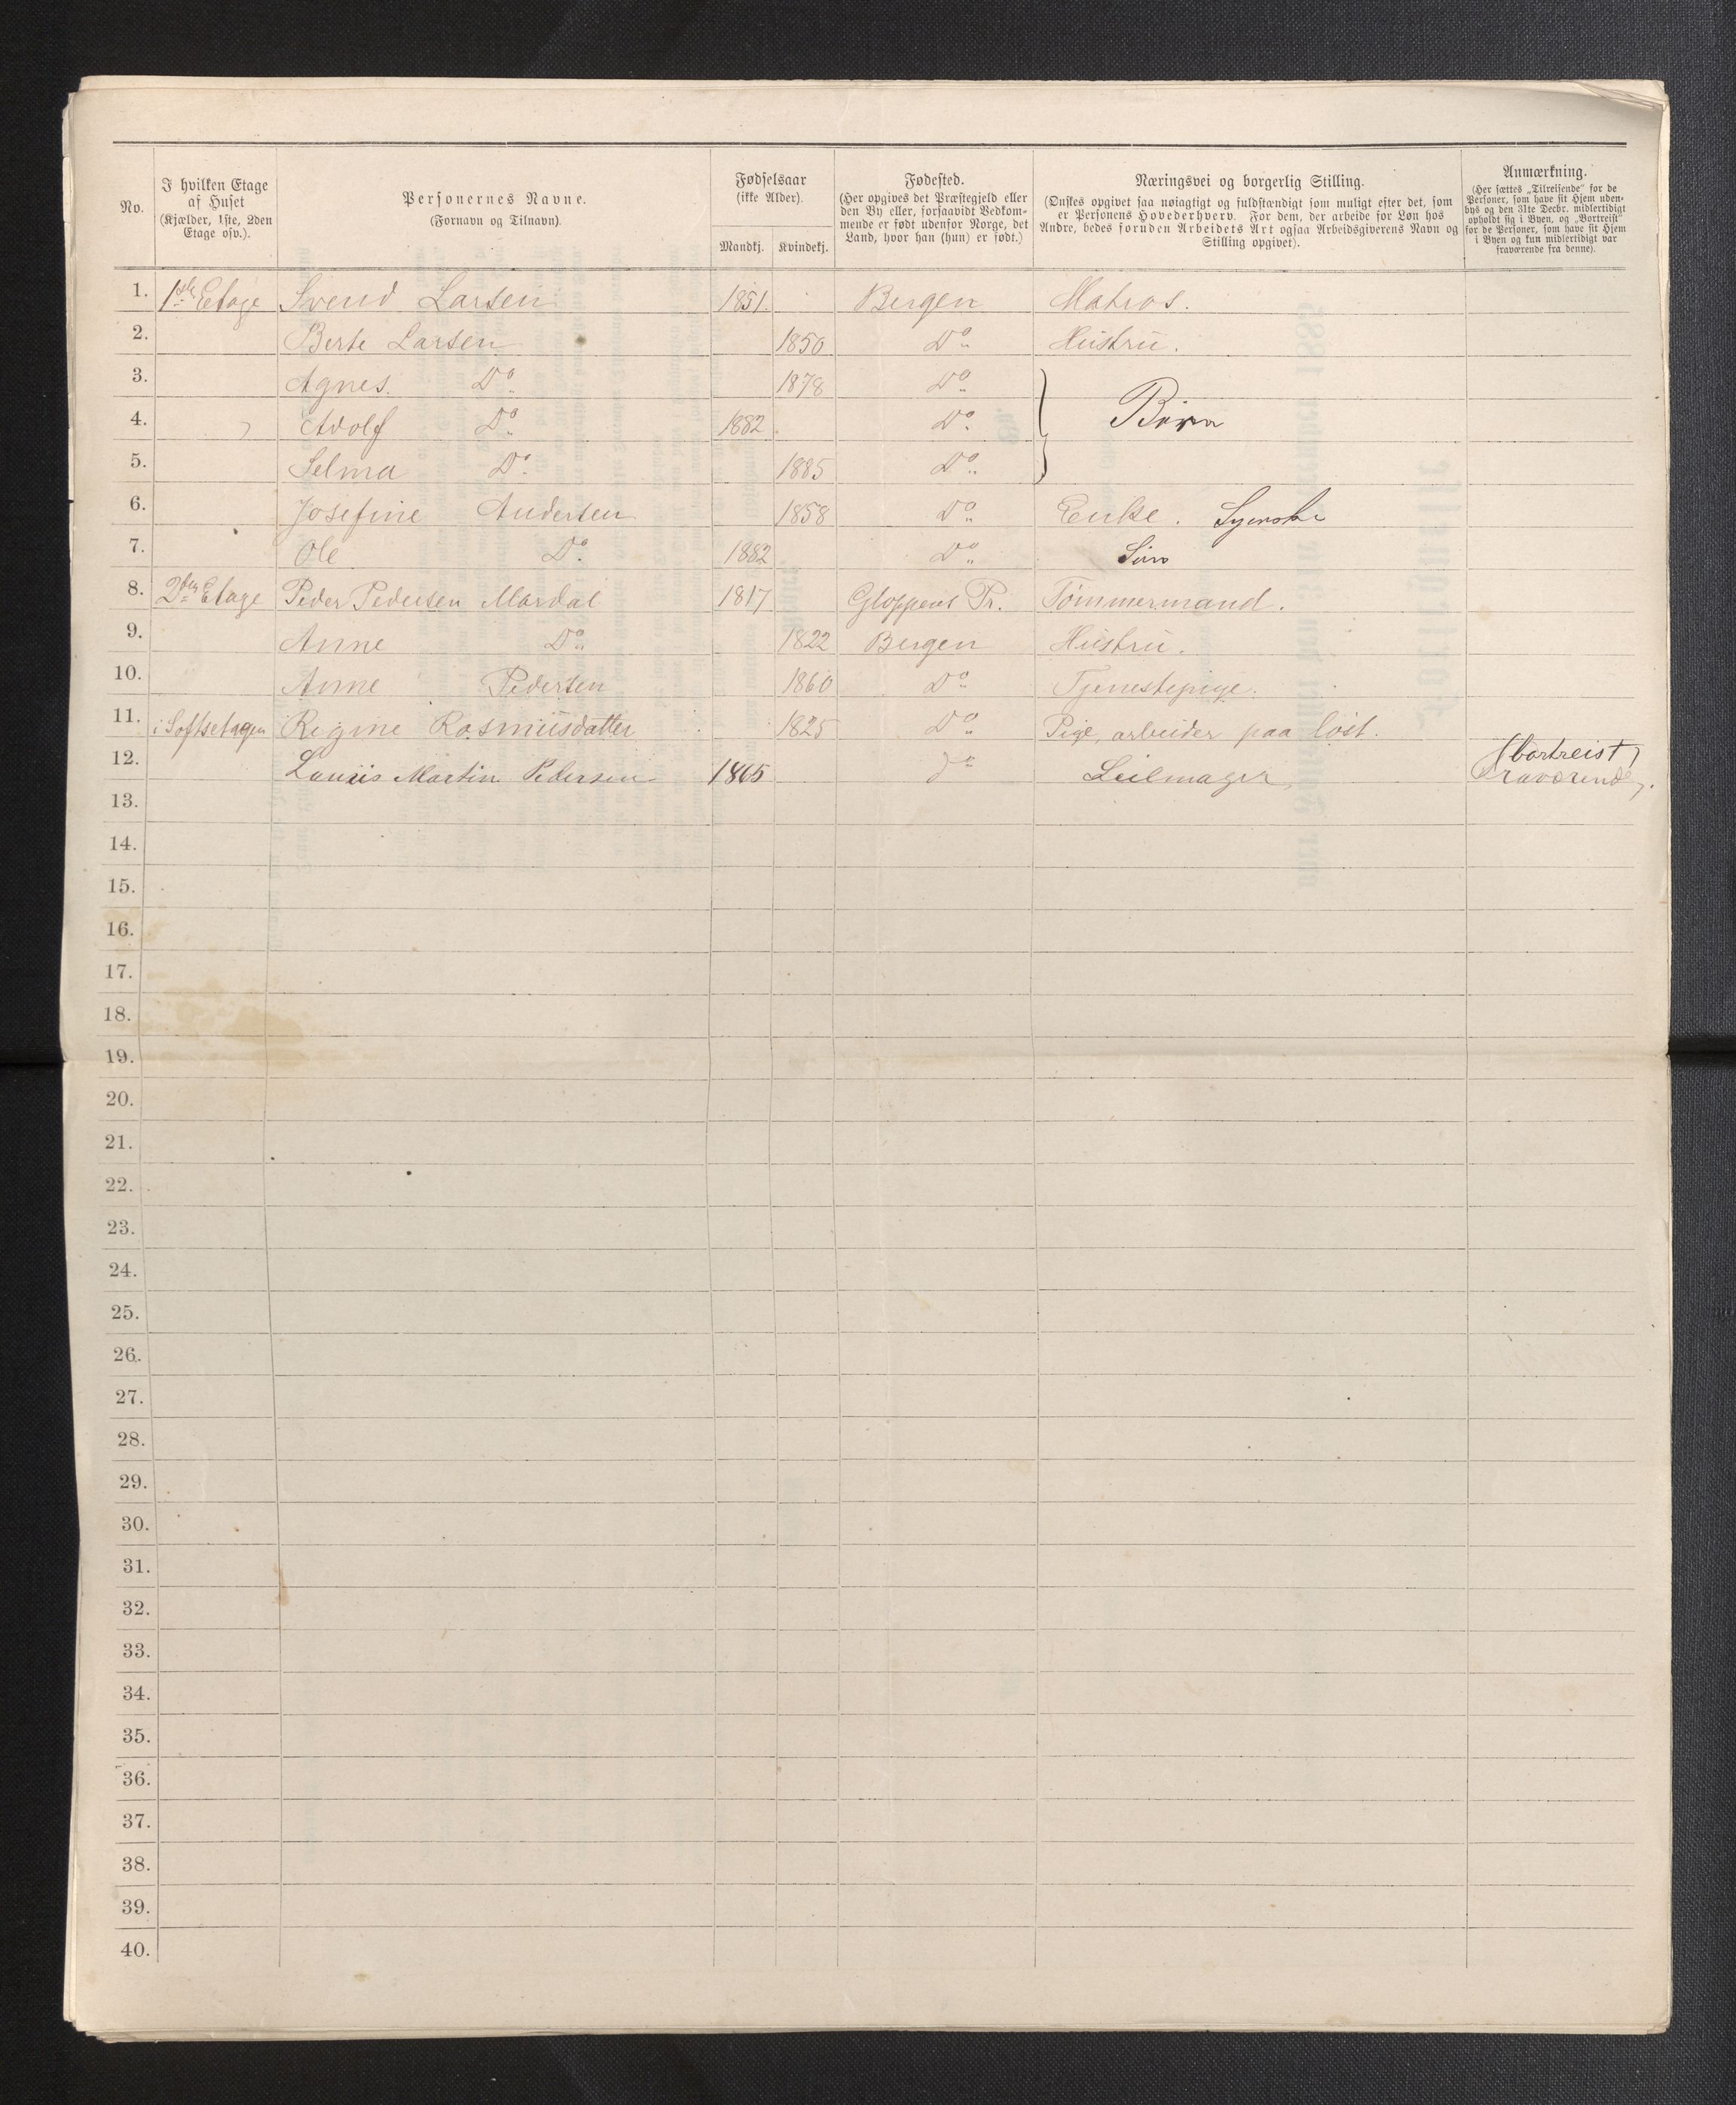 No.
I hvilken Etage
af Huset
(Kjælder, 1ste, 2den
Etage osv.).
Personernes Navne.
(Fornavn og Tilnavn).
Fødselsaar
(ikke Alder).
Mandkj. Kvindekj.
Fødested.
(Her opgives det Præstegjeld eller
den By eller, forsaavidt Vedkom-
mende er født udenfor Norge, det
Land, hvor han (hun) er født.)
Næringsvei og borgerlig Stilling.
(Ønskes opgivet saa nøiagtigt og fuldstændigt som muligt efter det, som
er Personens Hovederhverv. For dem, der arbeide for Løn hos
Andre, bedes foruden Arbeidets Art ogsaa Arbeidsgiverens Navn og
Stilling opgivet).
Anmærkning.
(Her sættes „Tilreisende“ for de
Personer, som have sit Hjem uden-
bys og den 31te Decbr. midlertidigt
opholdt sig i Byen, og „Bortreist“
for de Personer, som have sit Hjem
i Byen og kun midlertidigt var
fraværende fra denne).
1. 1ste Etage Svend Larsen 1851. Bergen Matros.
2. Berte Larsen 1850 Do Hustru.
3. Agnes. Do 1878 Do
4. Adolf Do 1882 Do Børn
5. Selma Do 1885 Do
6. Josefine Andersen 1858 Do Enke. Syerske
7. Ole Do 1882 Do Søn
8. 2den Etage Peder Pedersen Mardal 1817 Gloppens Pr. Tømmermand.
9. Anne Do 1822 Bergen Hustru.
10. Anne Pedersen 1860 Do Tjenestepige.
11. i Loftsetagen Regine Rasmusdatter 1825 Do Pige, arbeider paa løst.
12. Lauris Martin Pedersen 1865 do Seilmager (bortreist)
fraværende.
13.
14.
15.
16.
17.
18.
19.
20.
21.
22.
23.
24.
25.
26.
27.
28.
29.
30.
31.
32.
33.
34.
35.
36.
37.
38.
39.
40.